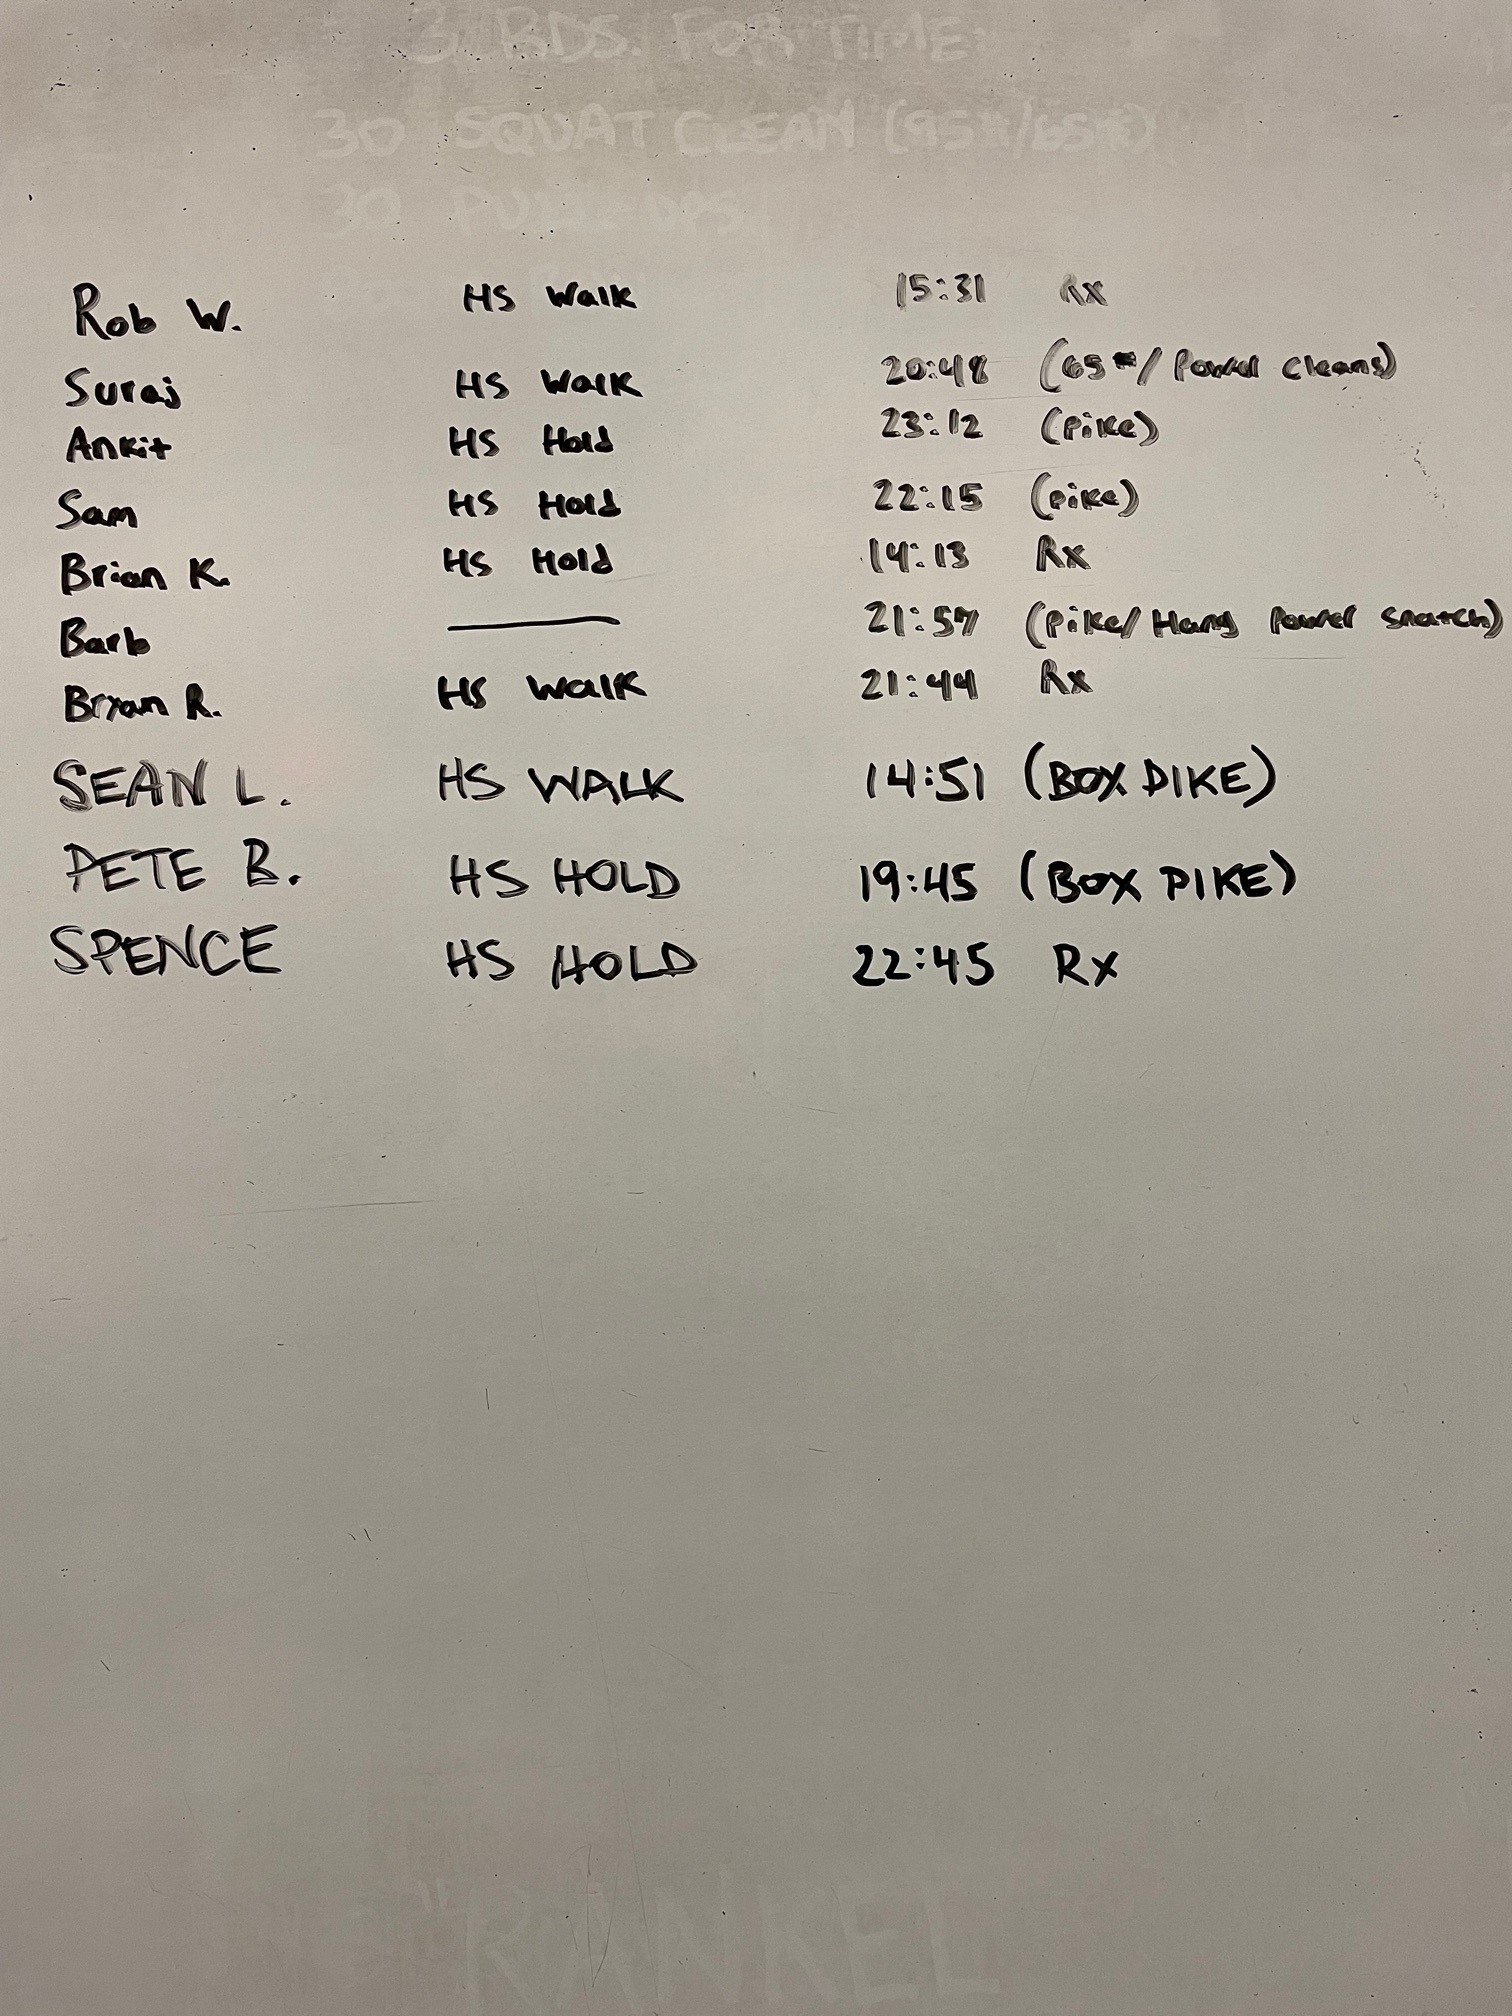 3 RDS. FOR TIME:
30 SQUAT CLEAN (95#/65#)
30 PULL-UPS
Rob W. HS Walk 15:31 Rx
Suraj HS Walk 20:48 (65#/Power Cleans)
Ankit HS Hold 23:12 (Pike)
Sam HS Hold 22:15 (pike)
Brian K. HS Hold 14:13 Rx
Barb — 21:57 (Pike/Hang Power Snatch)
Bryan R. HS Walk 21:44 Rx
SEAN L. HS WALK 14:51 (BOX PIKE)
PETE B. HS HOLD 19:45 (BOX PIKE)
SPENCE HS HOLD 22:45 Rx
"RANKEL